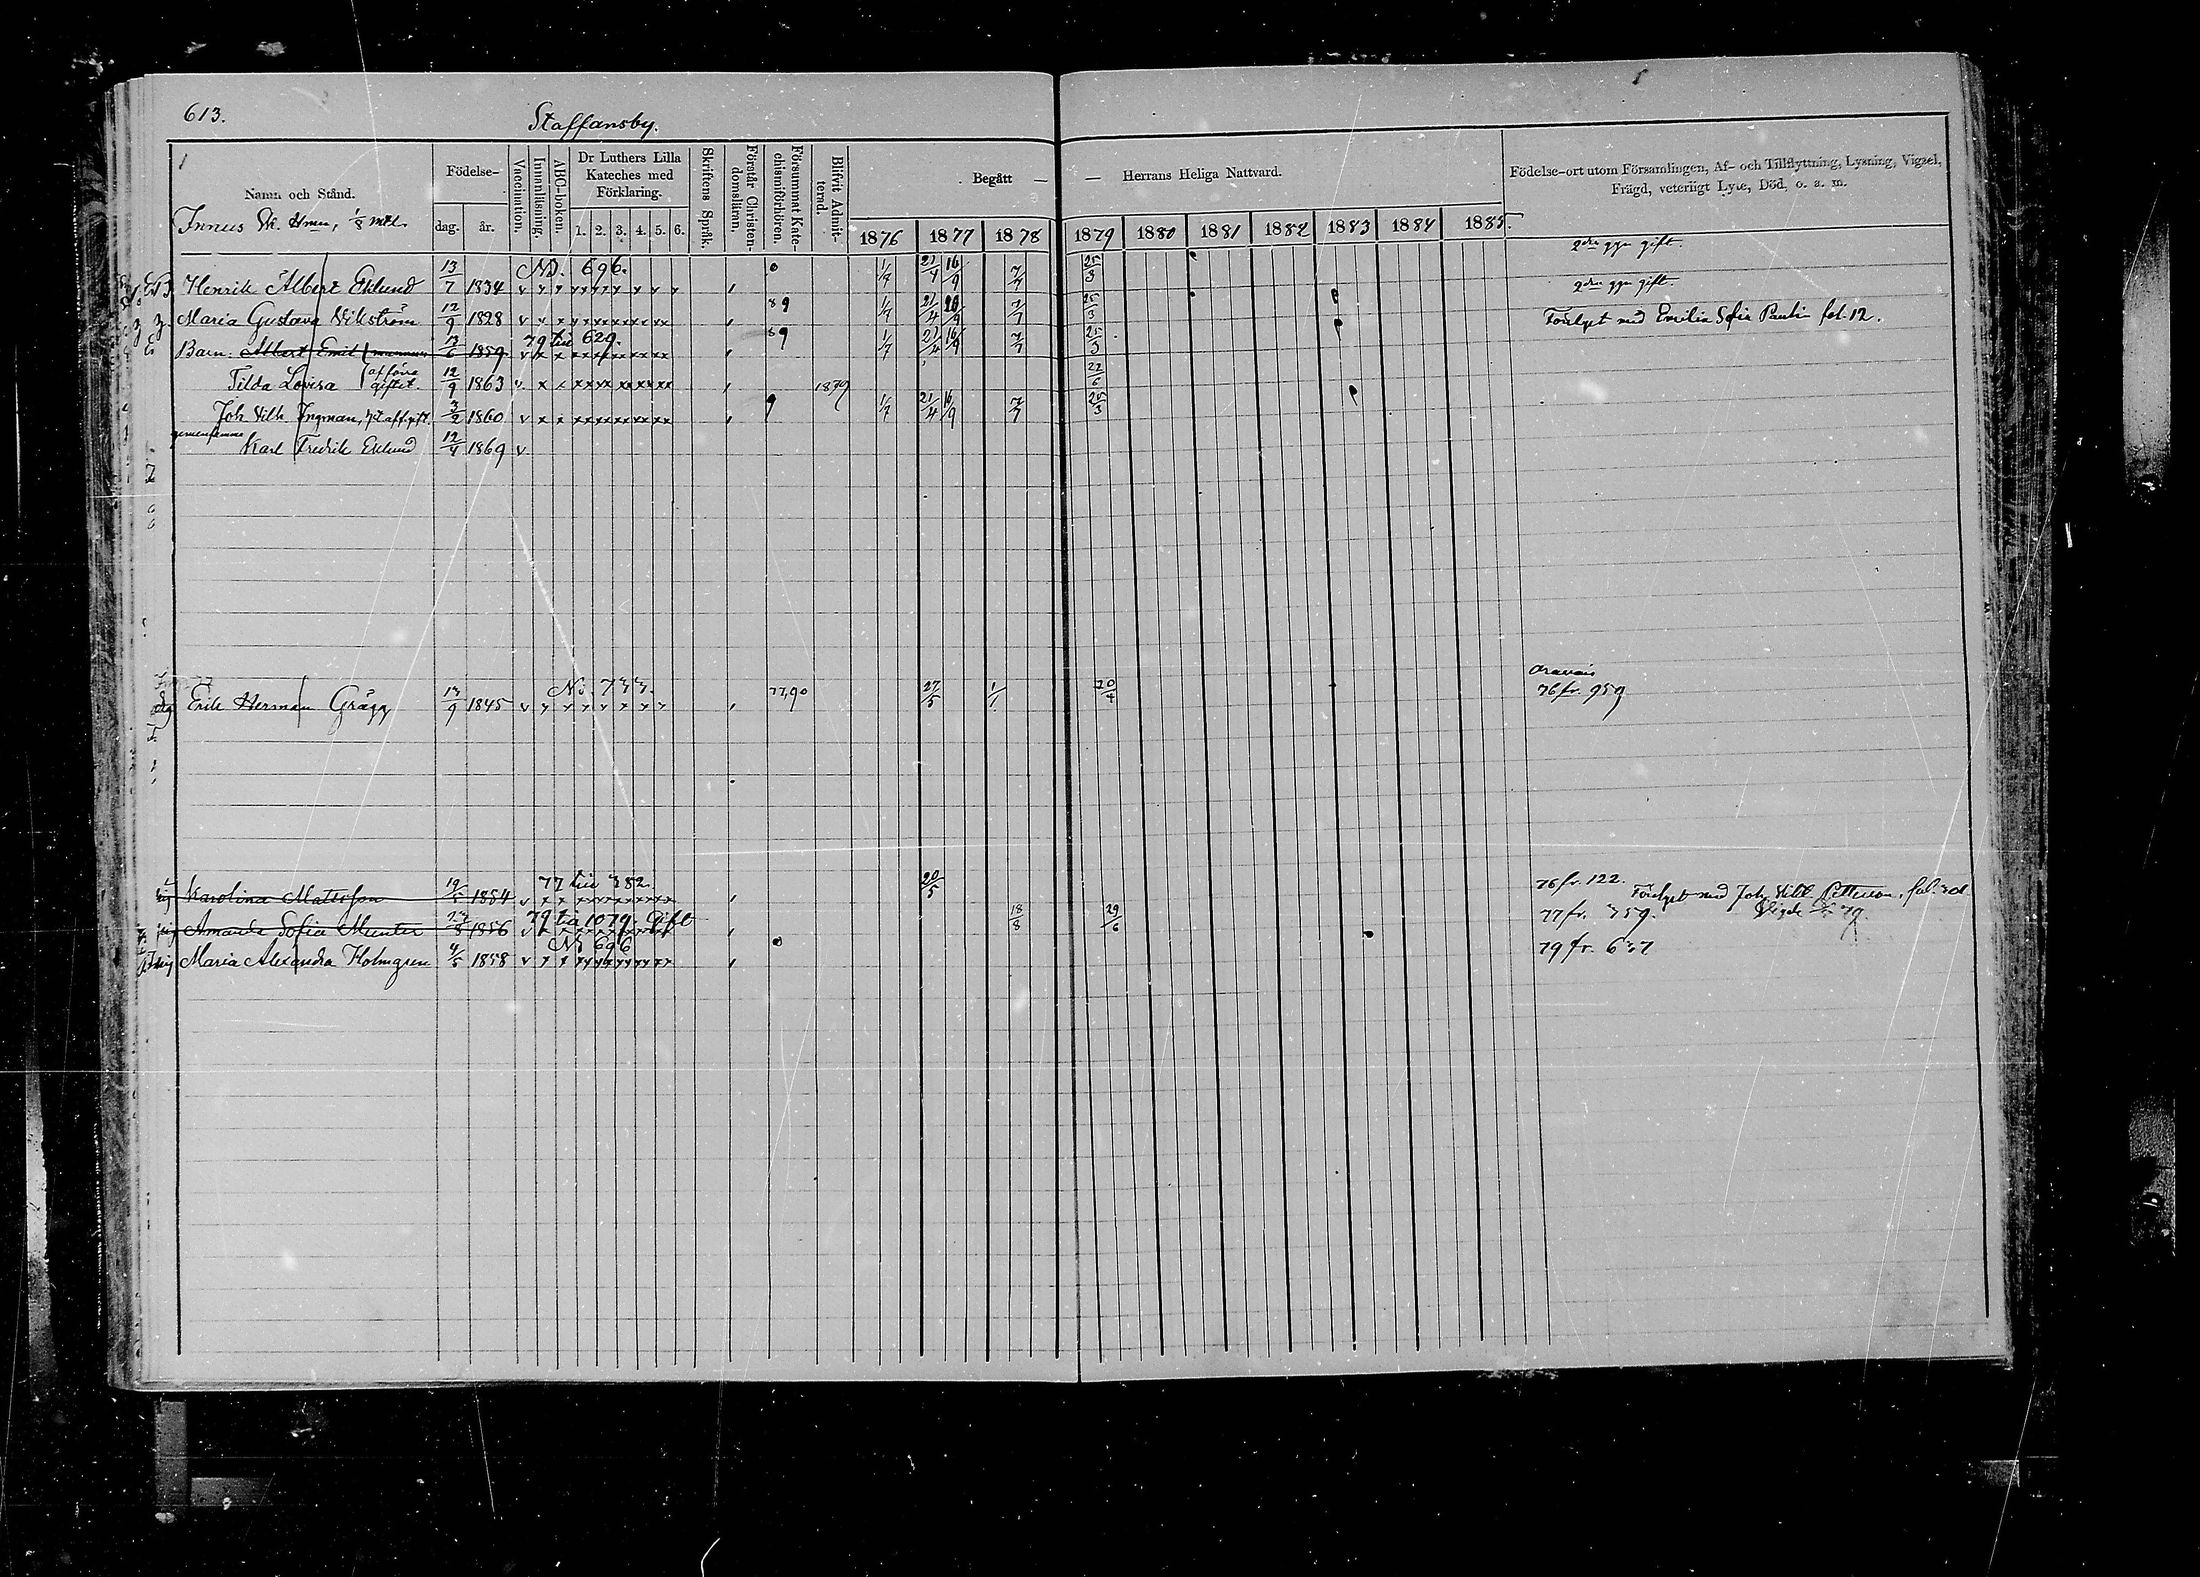 613.
Staffansby.
Namn och Stånd.
Födelse-
dag.
år.
Vaccination.
Innanläsning.
ABC-boken.
Dr Luthers Lilla
Kateches med
Förklaring.
1. 2. 3. 4. 5. 6.
Skriftens Språk.
Förstår Christen-
domsläran.
Försummat Kate-
chismiförhören.
Blifvit Admit-
terad.
Begått —
— Herrans Heliga Nattvard.
Födelse-ort utom Församlingen, Af- och Tillflyttning, Lysning, Vigsel,
Frägd, veterligt Lyte, Död, o. s. m.
1876 1877 1878 1879 1880 1881 1882 1883 1884 1885.
Innus 1/8 mtl.
N. 696.
2dra ggn gift.
Henrik Albert Eklund 13/7 1834 1/7 21/4 16/9 7/7 25/3
2dra ggn gift.
Maria Gustava Vikström 12/9 1828 89 1/7 21/4 7/7 25/3
79 till 629.
Förlyst med Emilia Sofia Paulin fol. 12.
Barn: Albert Emil mannens 13/6 1859 89 1/7 21/4 16/9 7/7 25/3
Tilda Lovisa af förra giftet. 12/9 1863 1879 22/6
Joh. Vilh. Ingman, 3/2 1860 1/7 21/4 16/9 7/7 25/3
gemensamma
Karl Fredrik Eklund 12/4 1869
Oravais
N. 733.
Erik Herman Grägg 13/9 1845 77,90 27/5 1/1 20/4 76 fr. 959
77 till 382.
Karolina Mattsson 19/5 1854 20/5 76 fr. 122.
Förlyst med Joh. Vilh. Petterson, fol.
79 till 1079. Gift
Amanda Sofia Munter 23/8 1856 18/8 29/6 77 fr. 359. Vigde 79
N. 696
Maria Alexandra Holmgren 4/5 1858 79 fr. 637